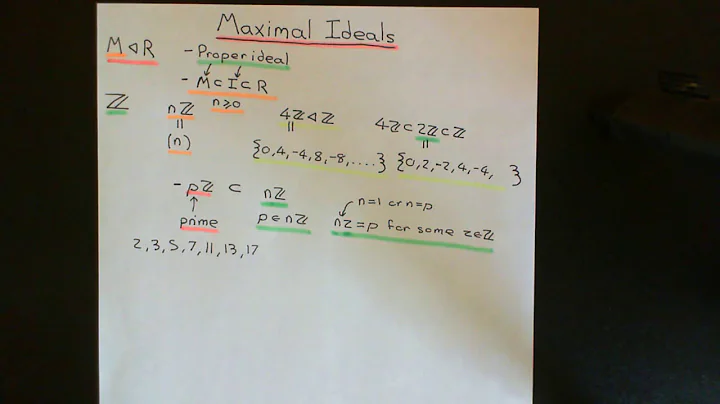 Maximal Ideals
M ◁ R - Proper ideal
- M ⊂ I ⊂ R
ℤ nℤ n≥0 4ℤ ◁ ℤ 4ℤ ⊂ 2ℤ ⊂ ℤ
= = =
(n) {0,4,-4,8,-8,....} {0,2,-2,4,-4, }
- pℤ ⊂ nℤ n=1 or n=p
↑
prime p ∈ nℤ nz = p for some z∈ℤ
2,3,5,7,11,13,17